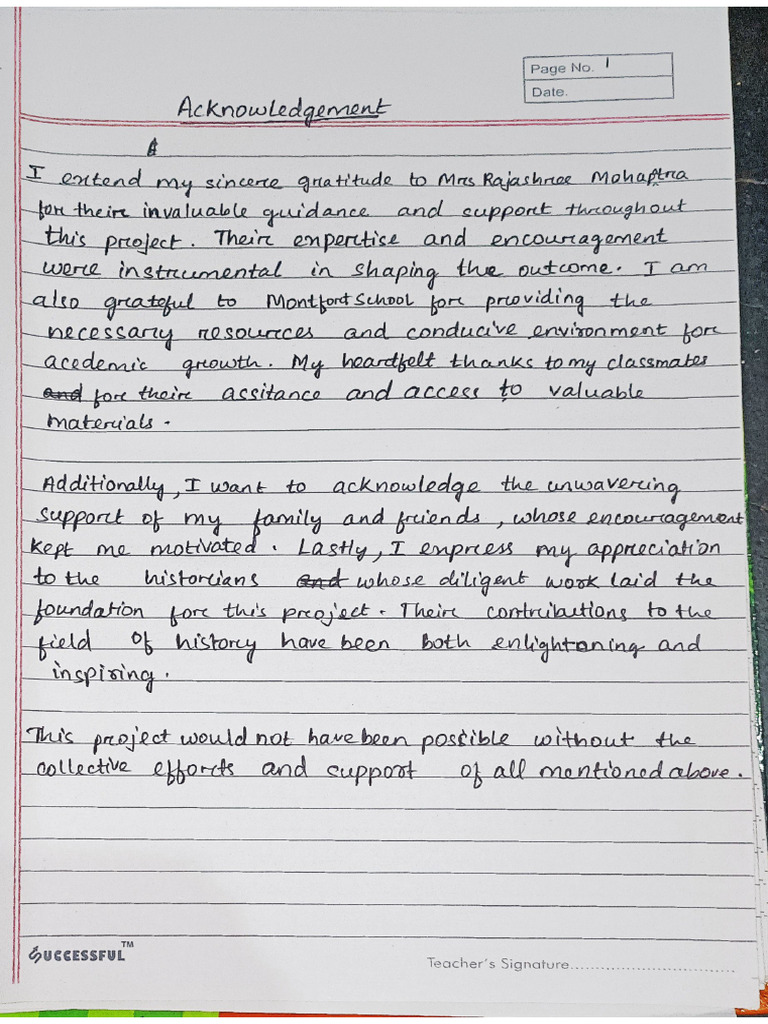 Page No. 1
Date.
Acknowledgement
I extend my sincere gratitude to Mrs Rajashree Mohaptra
for their invaluable guidance and support throughout
this project. Their expertise and encouragement
were instrumental in shaping the outcome. I am
also grateful to Montfort School for providing the
necessary resources and conducive environment for
acedemic growth. My heartfelt thanks to my classmates
and for their assitance and access to valuable
materials.
Additionally, I want to acknowledge the unwavering
support of my family and friends, whose encouragement
kept me motivated. Lastly, I express my appreciation
to the historians and whose diligent work laid the
foundation for this project. Their contributions to the
field of history have been both enlightoning and
inspiring.
This project would not have been possible without the
collective efforts and support of all mentioned above.
SUCCESSFUL TM
Teacher's Signature.................................